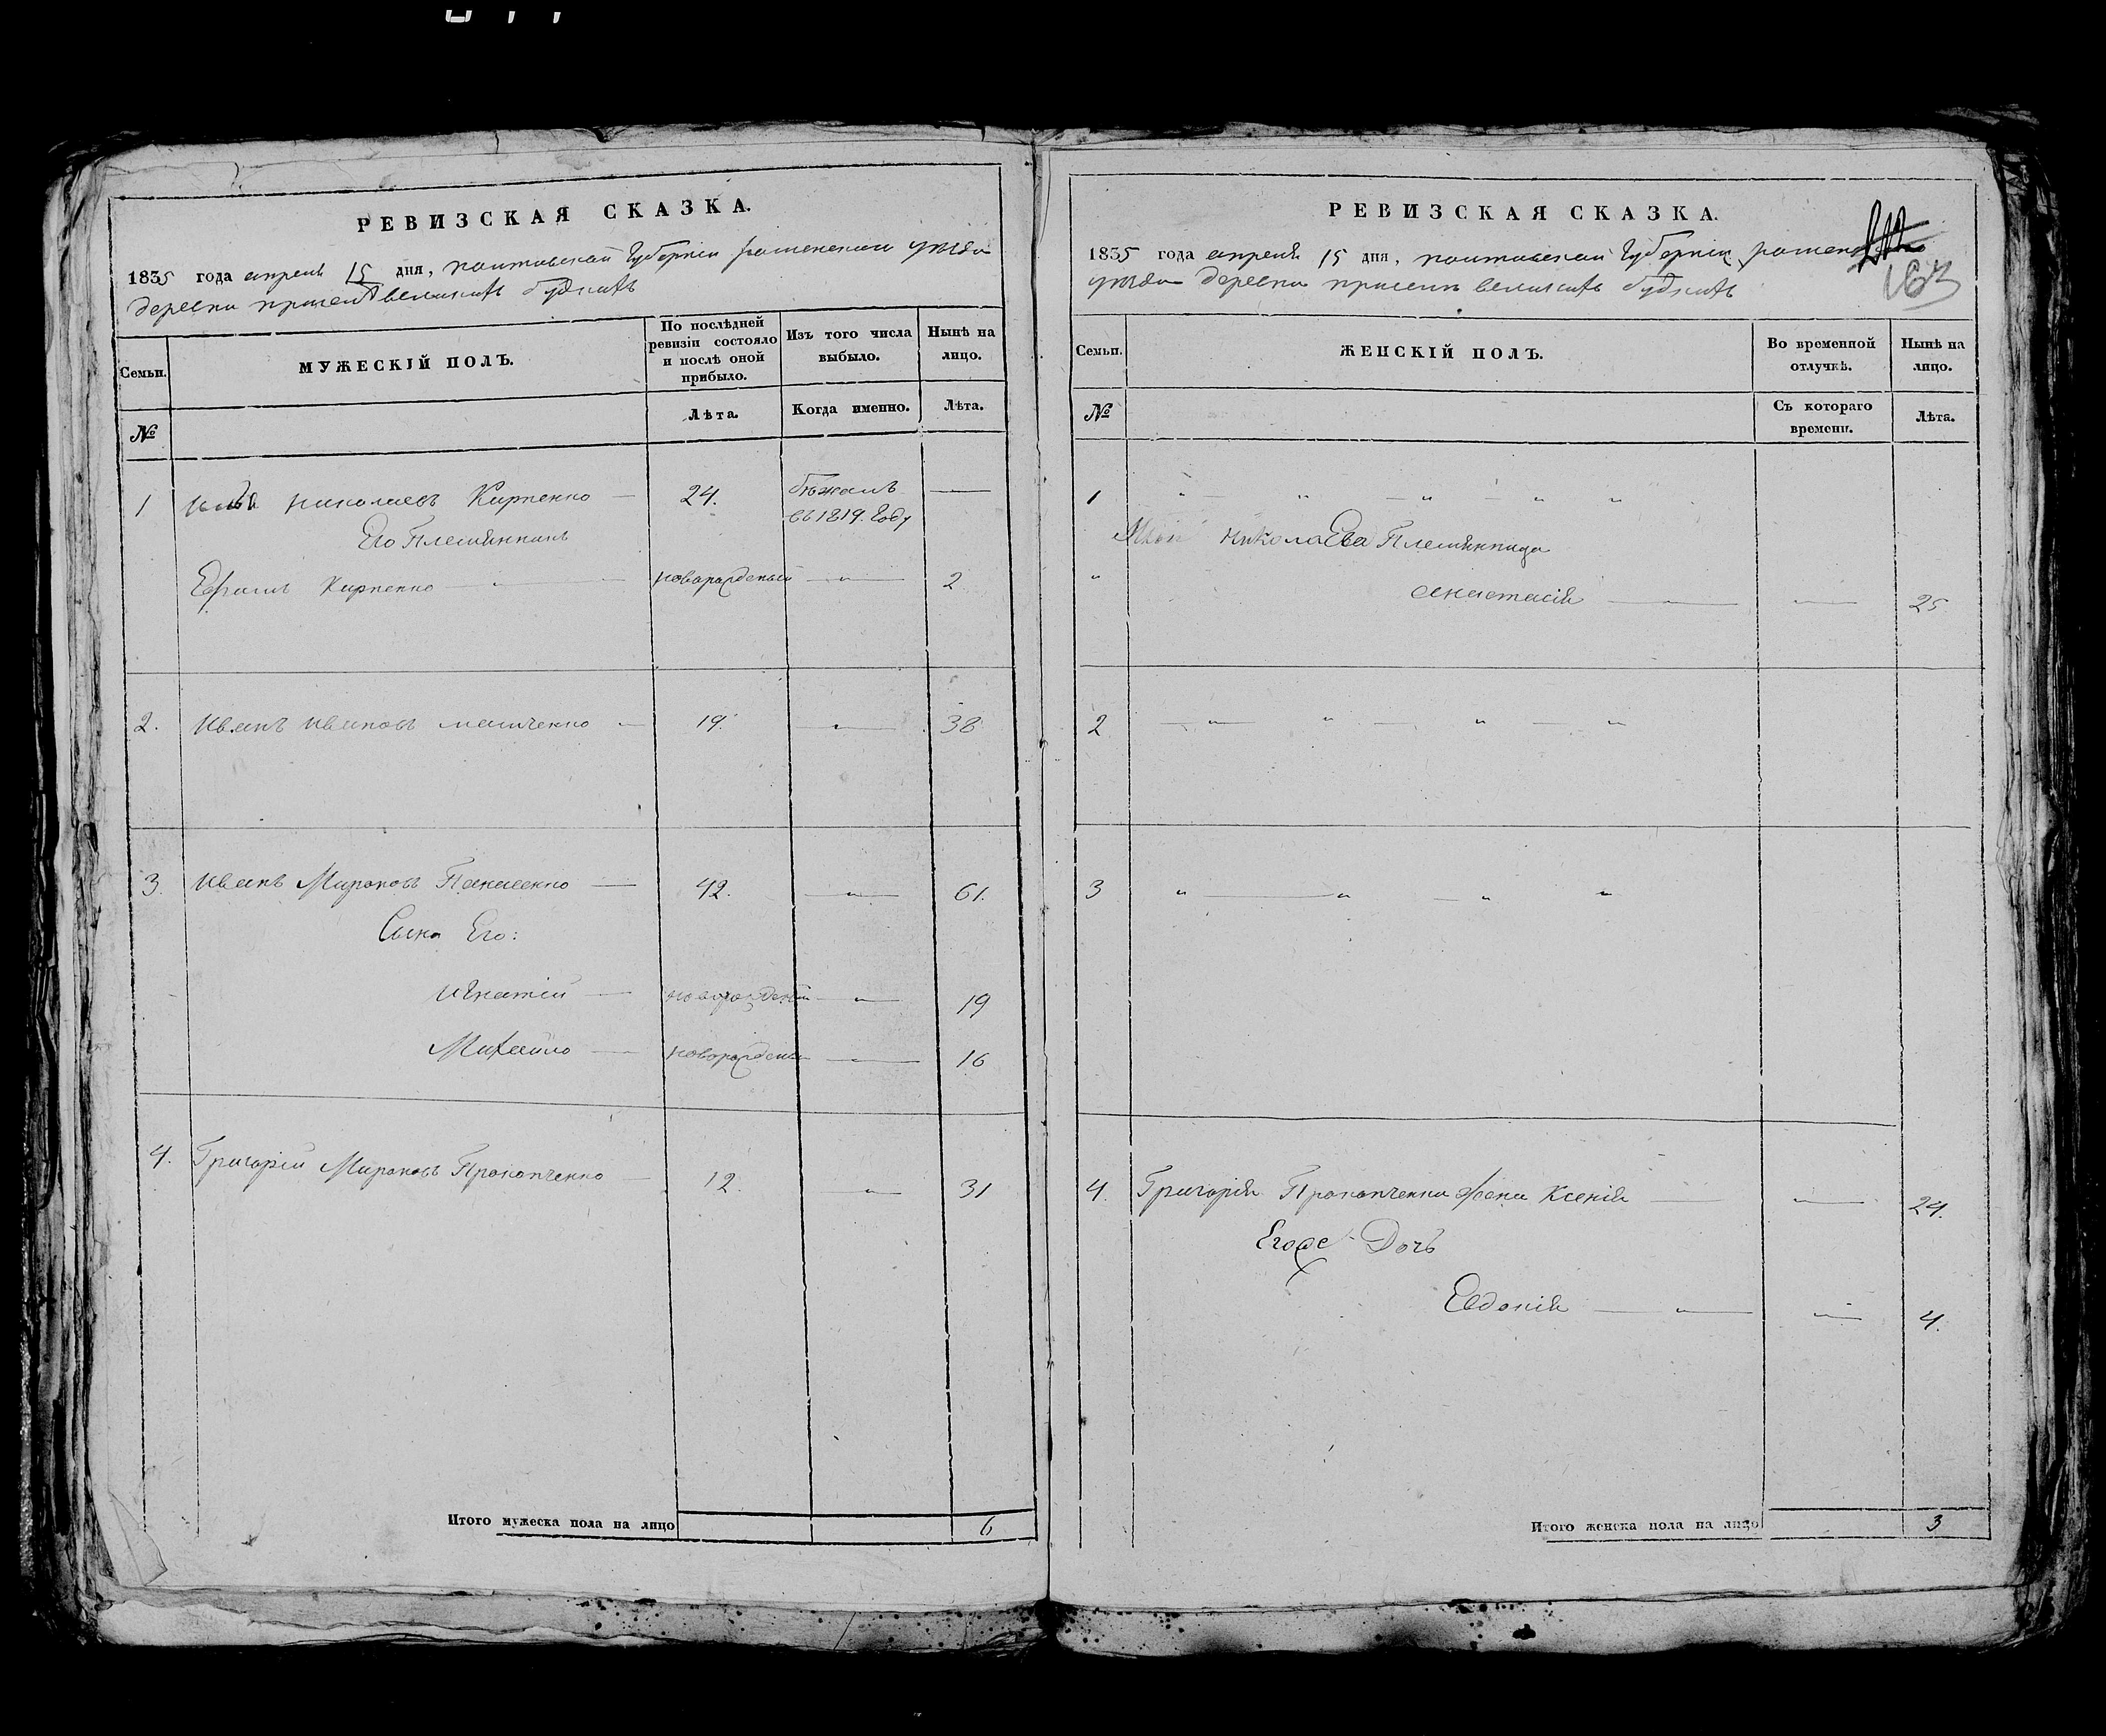 РЕВИЗСКАЯ СКАЗКА.
1835 года апреля 15 дня, полтавской Губернии роменскаго уезда
деревни при селе великихъ будкахъ
Семьи.
МУЖЕСКІЙ ПОЛЪ.
По послѣдней ревизіи состояло и послѣ оной прибыло.
Изъ того числа выбыло.
Нынѣ на лицо.
№
Лѣта.
Когда именно.
Лѣта.
1 Илья николаевъ Кирпенко — 24. бѣжалъ —
въ 1819. Году
Его Племянникъ
Ефимъ Кирпенко — новорожденый — 2
2. Иванъ Ивановъ — 19. — 38
3. Иванъ Мироновъ Панасенко — 42. — 61.
Сына Его:
Игнатій — новорожденый — 19
Михайло — новорожденый — 16
4. Григорій Мироновъ Прокопченко — 12. — 31
Итого мужеска пола на лицо 6
РЕВИЗСКАЯ СКАЗКА.
163
1835 года апреля 15 дня, полтавской Губерніи
уезда деревни при селе великихъ будкахъ
Семьи.
ЖЕНСКІЙ ПОЛЪ.
Во временной отлучкѣ.
Нынѣ на лицо.
№
Съ котораго времени.
Лѣта.
1
николаЕва Племянница
анастасія — — 25
2
3
4. Григорія Прокопченка жена Ксенія — 24.
Егоже Дочь
Евдокія — — 4.
Итого женска пола на лицо 3